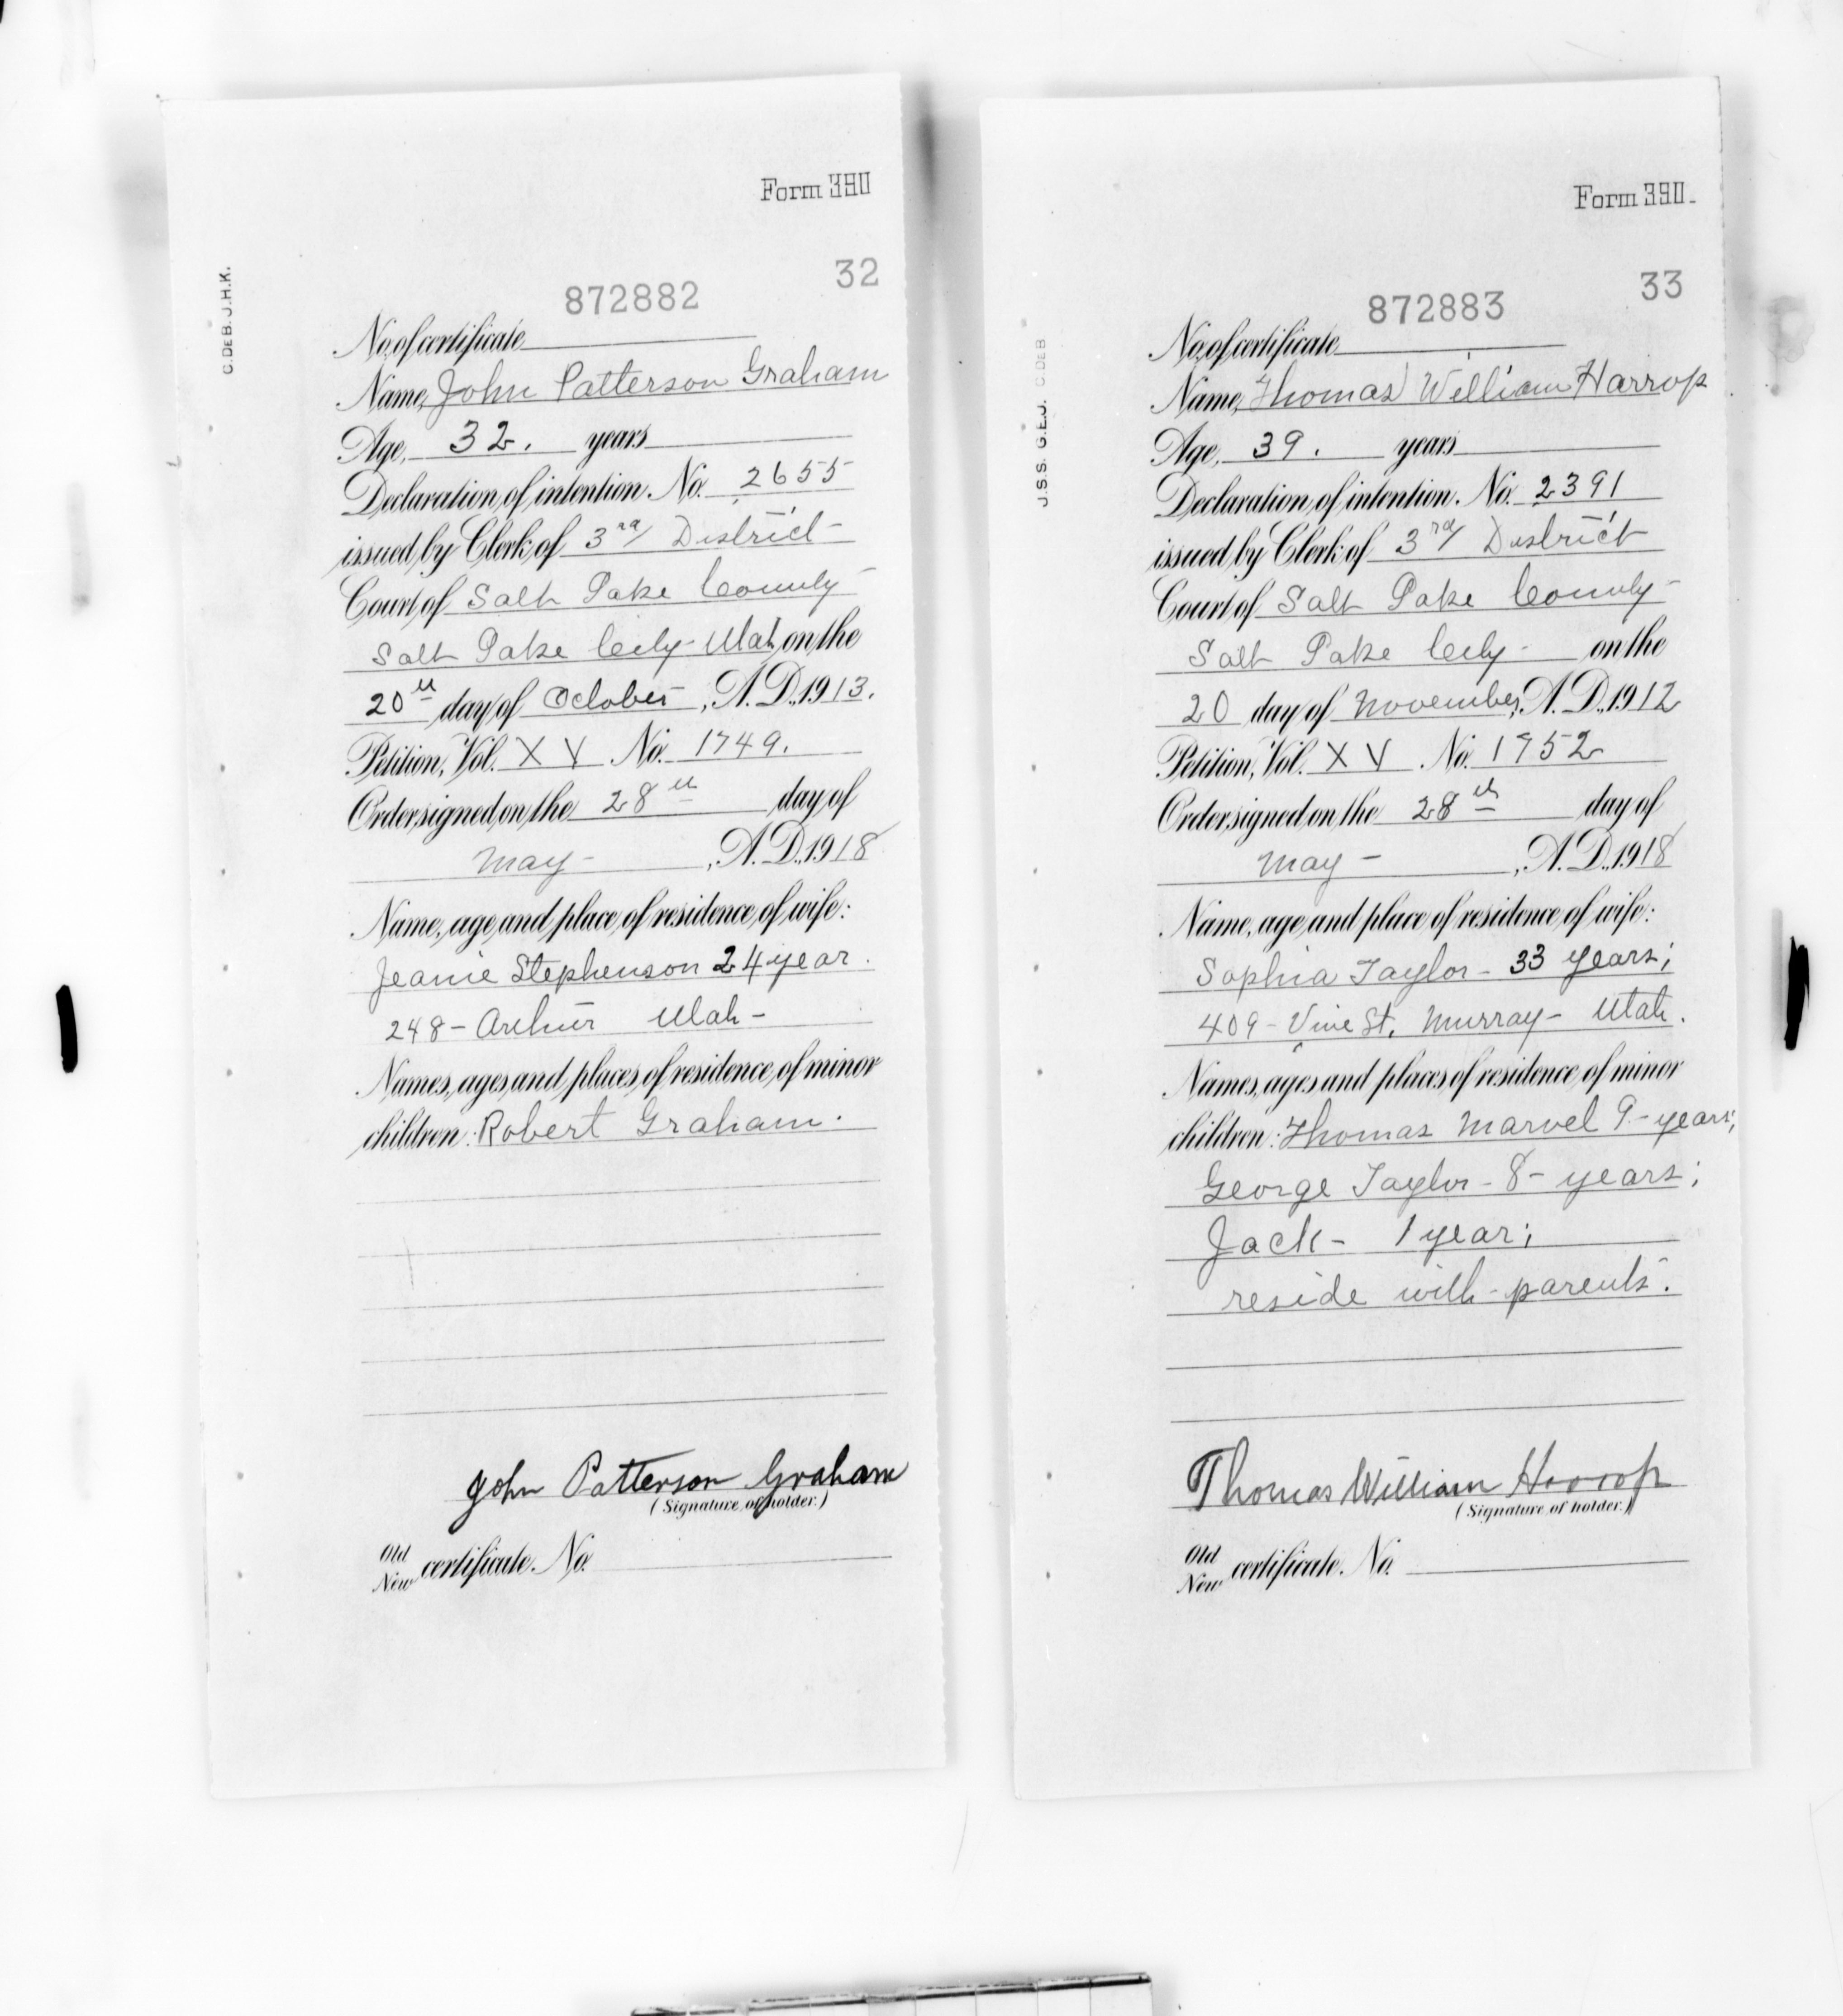 Form 390
C.DEB. J.H.K.
32
872882
No. of certificate
Name, John Patterson Graham
Age, 32. years
Declaration of intention. No. 2655
issued by Clerk of 3rd District
Court of Salt Lake County
Salt Lake City - Utah on the
20th day of October, A.D., 1913.
Petition, Vol. XV No. 1749.
Order signed on the 28th day of
May - , A.D., 1918
Name, age and place of residence of wife:
Jeanie Stephenson 24 year.
248 - Arthur Utah -
Names, ages and places of residence of minor
children: Robert Graham.
John Patterson Graham
(Signature of holder.)
Old
New certificate. No.
Form 390.
J.S.S. G.E.J. C.DEB
33
872883
No. of certificate
Name, Thomas William Harrop
Age, 39. years
Declaration of intention. No. 2391
issued by Clerk of 3rd District
Court of Salt Lake County
Salt Lake City - on the
20 day of November, A.D., 1912
Petition, Vol. XV No. 1752
Order signed on the 28th day of
May - , A.D., 1918
Name, age and place of residence of wife:
Sophia Taylor - 33 years;
409 - Vine St. Murray - Utah.
Names, ages and places of residence of minor
children: Thomas Marvel 9 - years;
George Taylor - 8 - years;
Jack - 1 year;
reside with - parents.
Thomas William Harrop
(Signature of holder.)
Old
New certificate. No.